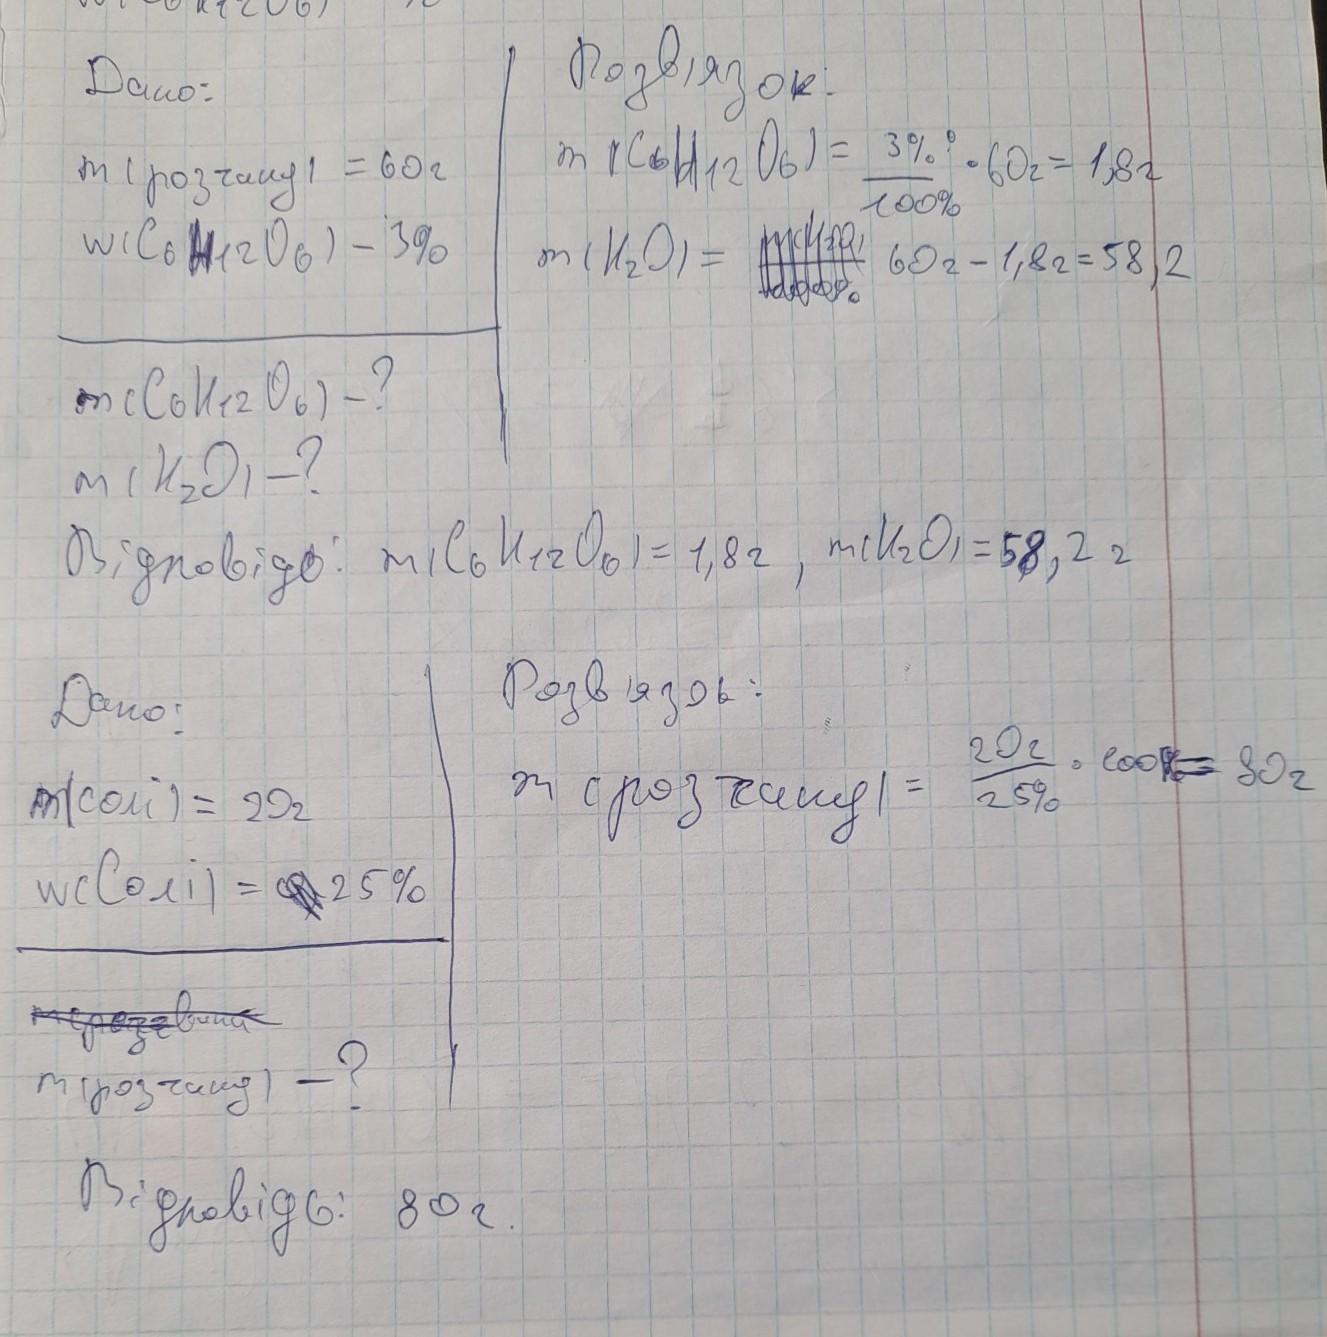 Дано:
m(розчину) = 60г
w(C6H12O6) - 3%
m(C6H12O6) - ?
m(H2O) - ?
Розв'язок:
m(C6H12O6) = 3%/100% · 60г = 1,8г
m(H2O) = 60г - 1,8г = 58,2
Відповідь: m(C6H12O6) = 1,8г, m(H2O) = 58,2 г
Дано:
m(солі) = 20г
w(Солі) = 25%
m(розчину) - ?
Розв'язок:
m(розчину) = 20г/25% · 100% = 80г
Відповідь: 80г.